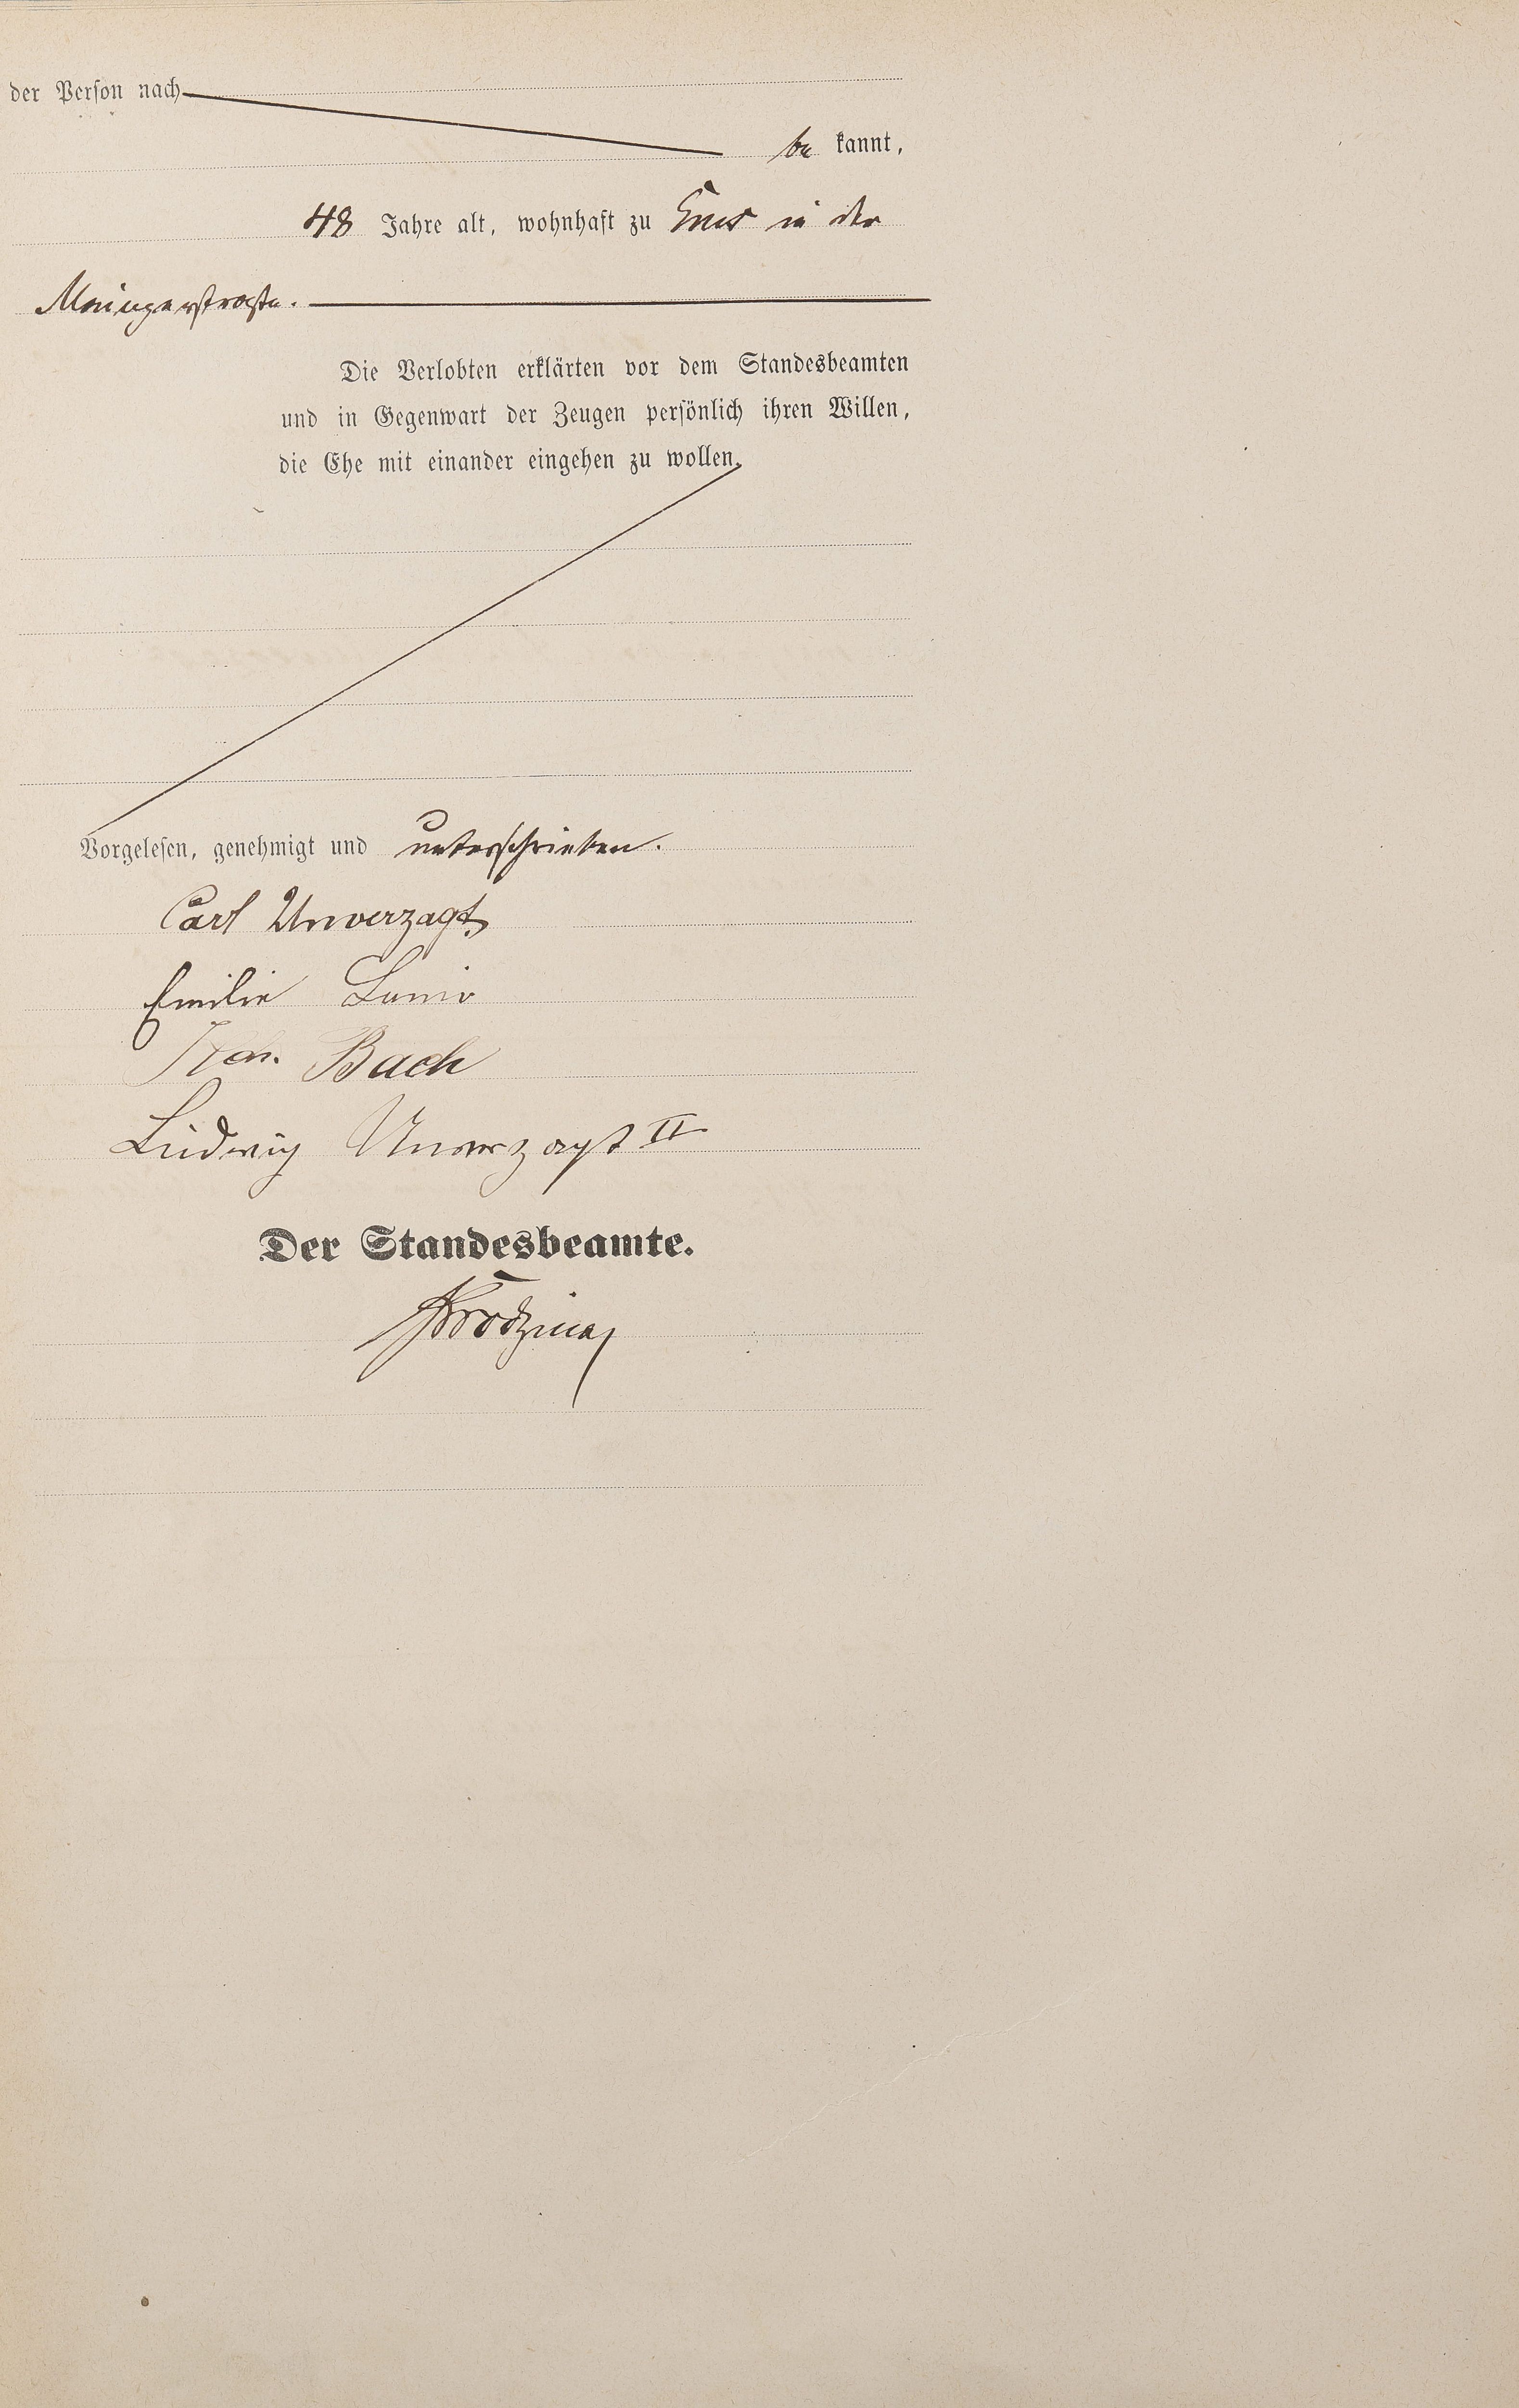 der Person nach
be kannt,
48 Jahre alt, wohnhaft zu Ems in der
Mainzerstraße.
Die Verlobten erklärten vor dem Standesbeamten
und in Gegenwart der Zeugen persönlich ihren Willen,
die Ehe mit einander eingehen zu wollen.
Vorgelesen, genehmigt und unterschrieben.
Carl Unverzagt
Emilie
Bach
Ludwig Unverzagt II
Der Standesbeamte.